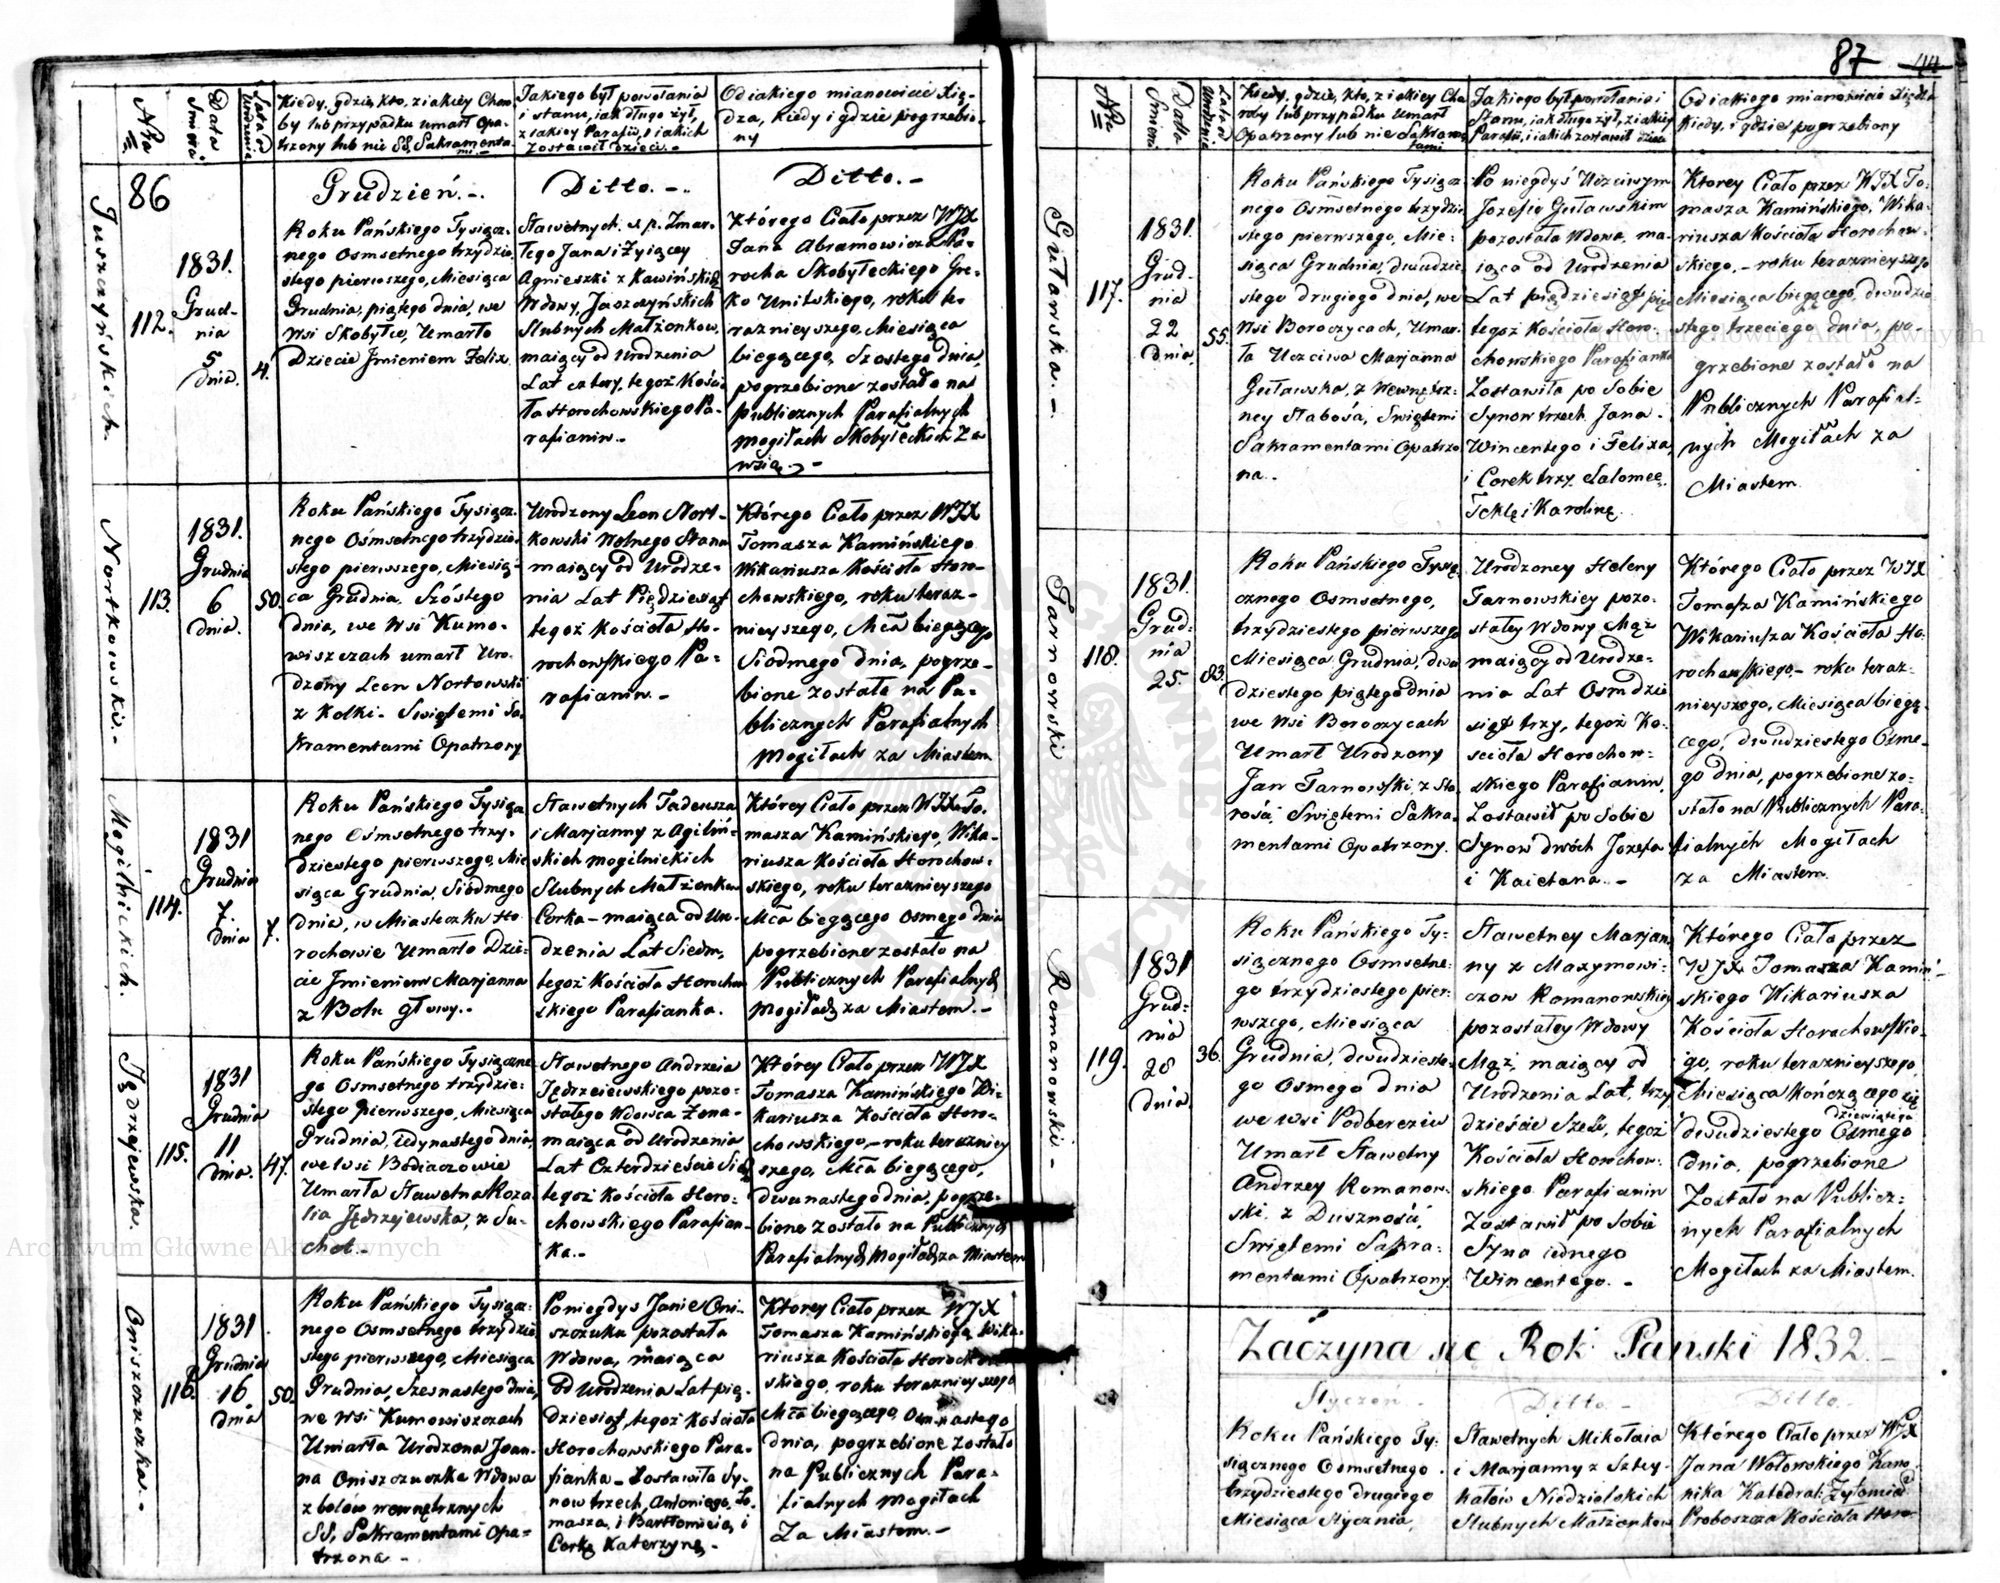 Nro
Data Śmierci
Lata od Urodzenia
Kiedy, gdzie, kto, z iakiey Choro-
by lub przypadku umarł Opa-
trzony lub nie SS. Sakramenta-
mi.-
Jakiego był powołania
i stanu, jak długo żył,
z iakiey Parafii, i iakich
Zostawił dzieci.-
Od iakiego mianowicie Xię-
dza, kiedy i gdzie pogrzebio-
ny
86
Juszczyńskich.
112.
1831.
Grud-
nia
5
dnia.
4.
Grudzień.-.
Roku Pańskiego Tysiącz-
nego Osmsetnego trzydzie-
stego pierwszego, Miesiąca
Grudnia, piątego dnia, we
Wsi Skobyłce, Umarło
Dziecie Jmieniem Felix.
Ditto.-.
Sławetnych. ś. p. Zmar-
łego Jana i Żyiącey
Agnieszki z Kawińskich
Wdowy, Juszczyńskich
Slubnych Małżonkow,
maiący od Urodzenia
Lat cztery, tegoż Kościo-
ła Horochowskiego Pa-
rafianin.-
Ditto.-
Którego Ciało przez WJX
Jana Abramowicza Pa-
rocha Skobyłeckiego Gre-
ko Unitskiego, roku te-
raznieyszego, Miesiąca
biegącego, Szostego dnia,
pogrzebione zostało na
publicznych Parafialnych
mogiłach Skobyłeckich Za
wsią.-
Nortkowski.-
113.
1831.
Grudnia
6
dnia.
50.
Roku Pańskiego Tysiącz-
nego Ośmsetnego trzydzie-
stego pierwszego, Miesią-
ca Grudnia. Szóstego
dnia, we Wsi Kumo-
wiszczach umarł Uro-
dzony Leon Nortowski
z Kolki. Swiętemi Sa-
kramentami Opatrzony
Urodzony Leon Nort-
kowski Wolnego Stanu
maiący od Urodze-
nia Lat Pięćdziesiąt
tegoż Kościoła Ho-
rochowskiego Pa-
rafianin.-
Którego Ciało przez WJX
Tomasza Kamińskiego
Wikariusza Kościoła Horo-
chowskiego, roku teraz-
nieyszego, Mca biegącego
Siodmego dnia, pogrze-
bione zostało na Pu-
blicznych Parafialnych
Mogiłach za Miastem
Mogilnickich.
114.
1831
Grudnia
7.
dnia
7.
Roku Pańskiego Tysiącz
nego Ośmsetnego trzy-
dziestego pierwszego, Mie
siąca Grudnia, Siódmego
dnia, w Miasteczku Ho
rochowie Umarło Dzie-
cie Jmieniem Marjanna
z Bolu głowy.-
Sławetnych Tadeusza
i Marjanny z
skich mogilnickich
Slubnych Małżonkow
Corka - maiąca od Uro-
dzenia Lat Siedm,
tegoż Kościoła Horochow
skiego Parafianka.
Którey Ciało przez WJX To-
masza Kamińskiego, Wika-
riusza Kościoła Horochow-
skiego, roku teraznieyszego
Mca biegącego osmego dnia
pogrzebione zostało na
Publicznych Parafialnych
mogiłach za Miastem.-
Jędrzejewska.
115.
1831
Grudnia
11
dnia.
47.
Roku Pańskiego Tysiączne
go Osmsetnego trzydzie-
stego pierwszego, Miesiąca
Grudnia, Jedynastego dnia,
we Wsi Bodiaczowie
Umarła Sławetna Roza
lia Jędrzejewska, z Su-
chot.-
Sławetnego Andrzeia
Jędrzeiewskiego pozo-
stałego Wdowca Żona-
maiąca od Urodzenia
Lat Czterdzieście Siedm
tegoż Kościoła Horo-
chowskiego Parafian-
ka.-
Którey Ciało przez WJX
Tomasza Kamińskiego Wi-
kariusza Kościoła Horo-
chowskiego, - roku terazniey
szego, Mca biegącego,
dwunastego dnia, pogrze-
bione zostało na Publicznych
Parafialnych Mogiłach za Miastem
Oniszczuczka.-
116.
1831.
Grudnia
16
dnia
50.
Roku Pańskiego Tysiącz-
nego Osmsetnego trzydzie
stego pierwszego, Miesiąca
Grudnia, Szesnastego dnia,
we Wsi Kumowiszczach
Umarła Urodzona Joan-
na Oniszczuczka Wdowa
z bolów wewnętrznych
SS, Sakramentami Opa-
trzona -
Po niegdyś Janie Oni-
szczuku pozostała
Wdowa, maiąca
Od Urodzenia Lat pię-
dziesiąt, tegoż Kościoła
Horochowskiego Para-
fianka - Zostawiła Sy-
now trzech, Antoniego, To-
masza, i Bartłomieia, i
Corkę Katerzynę.-
Ktorey Ciało przez WJX
Tomasza Kamińskiego Wika-
riusza Kościoła Horochow
skiego, roku teraznieyszego
Mca biegącego, Osmnastego
dnia, pogrzebione Zostało
na Publicznych Para-
fialnych mogiłach
Za Miastem.-
87 44
Nro
Data Śmierci
Lata od Urodzenia
Kiedy, gdzie, kto, z iakiey Cho
roby lub przypadku Umarł
Opatrzony lub nie Sakramen
tami
Jakiego był powołania i
Stanu, jak długo żył, z iakiey
Parafii, i iakich zostawił dzieci
Od iakiego mianowicie Xiędza
Kiedy, i gdzie pogrzebiony
Guławska.-
117.
1831.
Grud-
nia
22
dnia
55.
Roku Pańskiego Tysiącz
nego Osmsetnego trzydzie
stego pierwszego, Mie-
siąca Grudnia, dwudzie
stego drugiego dnia, we
Wsi Boroczycach, Umar-
ła Uczciwa Marjanna
Guławska, z Wewnętrz-
ney Słabośći, Swiętemi
Sakramentami Opatrzo
na.-
Po niegdyś Uczciwym
Jozefie Guławskim
pozostała Wdowa, ma-
iąca od Urodzenia
Lat pięćdziesiąt pięć
tegoż Kościoła Horo-
chowskiego Parafianka
Zostawiła po Sobie
Synow trzech Jana-
Wincentego i Felixa,
i Corek trzy. Salomeę,
Teklę i Karolinę.
Ktorey Ciało przez WJX To-
masza Kamińskiego, Wika-
riusza Kościoła Horochow-
skiego.- roku teraznieyszego
Miesiąca biegącego, dwudzie
stego trzeciego dnia, po-
grzebione zostało na
Publicznych Parafial-
nych Mogiłach za
Miastem
Tarnowski
118.
1831.
Grud-
nia
25.
83.
Roku Pańskiego Tysią
cznego Osmsetnego,
trzydziestego pierwszego
Miesiąca Grudnia, dwu
dziestego piątego dnia
we Wsi Boroczycach
Umarł Urodzony
Jan Tarnowski, z Sta
rości, Swiętemi Sakra-
mentami Opatrzony.
Urodzoney Heleny
Tarnowskiey pozo-
stałey Wdowy Mąż
maiący od Urodze-
nia Lat Osmdzie
siąt trzy, tegoż Ko-
scioła Horochow-
skiego Parafianin,
Zostawił po Sobie
Synow dwóch Jozefa
i Kaietana.-
Którego Ciało przez WJX
Tomasza Kamińskiego
Wikariusza Kościoła Ho-
rochowskiego - roku teraz-
nieyszego, Miesiąca biegą-
cego, dwudziestego Osme-
go dnia, pogrzebione zo-
stało na Publicznych Para-
fialnych Mogiłach
za Miastem.
Romanowski -
119.
1831
Grud-
nia
28
dnia
36.
Roku Pańskiego Ty-
siącznego Osmsetne-
go trzydziestego pier-
wszego, Miesiąca
Grudnia, dwudzieste-
go Osmego dnia
we wsi Podbereziu
Umarł Sławetny
Andrzey Romanow-
ski. z Duszności,
Swiętemi Sakra-
mentami Opatrzony.
Sławetney Marjan
ny z Maxymowi-
czow Romanowskiey
pozostałey Wdowy
Mąż, maiący od
Urodzenia Lat, trzy
dzieście Szesć, tegoż
Kościoła Horochow-
skiego Parafianin
Zostawił po Sobie
Syna iednego
Wincentego.-
Którego Ciało przez
WJX Tomasza Kamiń-
skiego Wikariusza
Kościoła Horochowskie-
go, roku teraznieyszego,
Miesiąca kończącego się
dziewiątego
dwudziestego Osmego
dnia, pogrzebione
Zostało na Publicz-
nych Parafialnych
Mogiłach za Miastem.
Zaczyna się Rok Pański 1832.-
Styczeń-
Roku Pańskiego Ty-
siącznego Osmsetnego
trzydziestego drugiego
Miesiąca Stycznia,
Ditto.-
Sławetnych Mikołaia
i Marjanny z
Niedzielskich
Slubnych Małżonkow
Ditto.-
Którego Ciało przez WJX
Jana Wołowskiego Kano-
nika Katedral: Żytomir
Proboszcza Kościoła Horo-
Archiwum Główne Akt Dawnych
Archiwum Główne Akt Dawnych